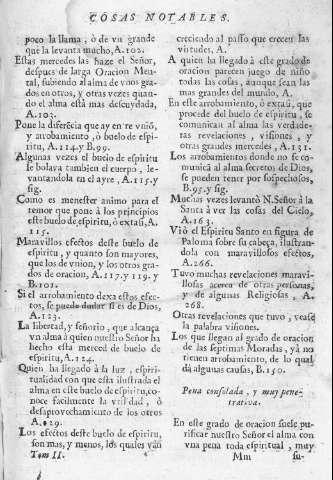 COSAS NOTABLES.
poco la llama, ò de vn grande
que la levanta mucho, A. 102.
Estas mercedes las haze el Señor,
despues de larga Oracion Men-
tal, subiendo al alma de vnos gra-
dos en otros, y otras vezes quan-
do el alma està mas descuydada,
A. 103.
Pone la diferẽcia que ay en-tre vniõ,
y arrobamiento, ò buelo de espi-
ritu, A. 114. y B. 99.
Algunas vezes el buelo de espiritu
se bolava tambien el cuerpo, le-
vantandola en el ayre, A. 115. y
sig.
Como es menester animo para el
temor que pone à los principios
este buelo de espiritu, ò extasi, A.
115.
Maravillos efectos deste buelo de
espiritu, y quanto son mayores,
que los de vnion, y los otros gra-
dos de oracion, A. 117. y 119. y
B. 101.
Si el arrobamiento dexa estos efec-
tos, se puede dudar si es de Dios,
A. 123.
La libertad, y señorio, que alcança
vn alma à quien nuestro Señor ha
hecho esta merced de buelo de
espiritu, A. 124.
Quien ha llegado à la luz, espiri-
tualidad con que està ilustrada el
alma en este buelo de espiritu, co-
noce facilmente la vtilidad, ò
desaprovechamiento de los otros
A. 129.
Los efectos deste buelo de espiritu,
son mas, y menos, los quales van
Tom II.
creciendo al passo que crecen las
virtudes, A.
A quien ha llegado à este grado de
oracion parecen juego de niño
todas las cosas, aunque sean las
mas grandes del mundo, A.
En este arrobamiento, ò extasi, que
procede del buelo de espiritu, se
comunican al alma las verdade-
ras revelaciones, visiones, y
otras grandes mercedes, A. 131.
Los arrobamientos donde no se co-
munica al alma secretos de Dios,
se pueden tener por sospechosos,
B. 95. y sig.
Muchas vezes levantò N. Señor à la
Santa à ver las cosas del Cielo,
A. 163.
Viò el Espiritu Santo en figura de
Paloma sobre su cabeça, ilustran-
dola con maravillosos efectos,
A. 266.
Tuvo muchas revelaciones maravi-
llosas acerca de otras personas,
y de algunas Religiosas, A.
268.
Otras revelaciones que tuvo, vease
la palabra visiones.
Los que llegan al grado de oracion
de las septimas Moradas, yà no
tienen arrobamiento, de lo qual
dà algunas causas, B. 150.
Pena consolada, y muy pene-
trativa.
En este grado de oracion suele pu-
rificar nuestro Señor el alma con
vna pena toda espiritual, muy
Mm su-